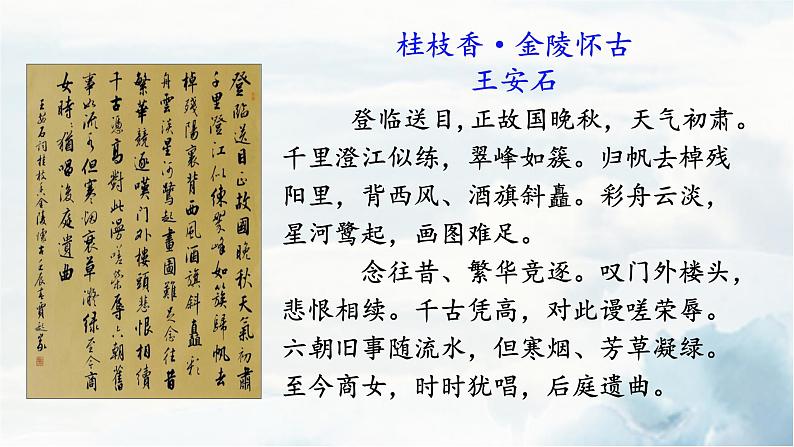 桂枝香·金陵怀古
王安石
登临送目,正故国晚秋，天气初肃。
千里澄江似练，翠峰如簇。归帆去棹残
阳里，背西风、酒旗斜矗。彩舟云淡，
星河鹭起，画图难足。
念往昔、繁华竞逐。叹门外楼头，
悲恨相续。千古凭高，对此谩嗟荣辱。
六朝旧事随流水，但寒烟、芳草凝绿。
至今商女，时时犹唱，后庭遗曲。
登臨送目正故國晚秋天氣初肅
千里澄江似練翠峰如簇歸帆去
棹殘陽裏背西風酒旗斜矗彩
舟雲淡星河鷺起畫圖難足念往昔
繁華競逐嘆門外樓頭悲恨相續
千古憑高對此漫嗟榮辱六朝舊
事如流水但寒烟衰草凝綠至今商
女時時猶唱後庭遺曲
王安石詞桂枝香金陵懷古壬辰春